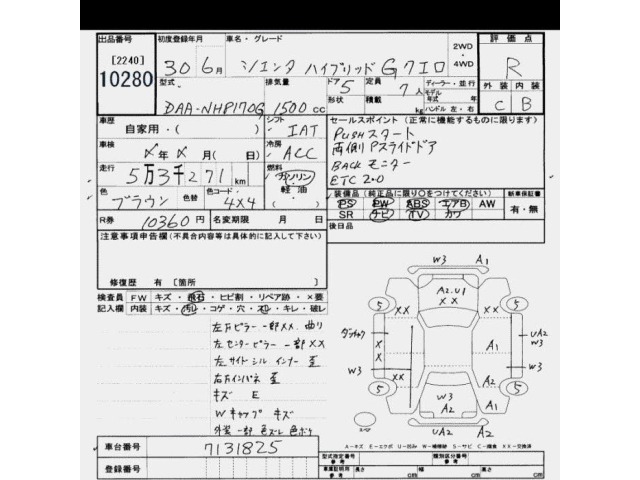 出品番号 初度登録年月 車名・グレード 2WD ・ 4WD 評価点
[2240]
10280 30年6月 シエンタ ハイブリッド G クエロ R
型式 排気量 ドア 定員 ディーラー・並行 外装 内装
DAA-NHP170G 1500cc 5 7人 モデル年式 年 C B
形状 積載 kg ハンドル 左・右
車歴 シフト セールスポイント (正常に機能するものに限ります)
自家用・( ) IAT Pushスタート
車検 冷房 両側Pスライドドア
年 月(日) ACC BACKモニター
走行 燃料 ETC2.0
5万3千271km ガソリン 軽油
色 色替 色コード 装備品(純正品に限り○をつけてください) 新車保証書
ブラウン 4X4 PS PW ABS エアB AW 有・無
R券 10360円 名変期限 月 日 SR ナビ TV カワ
注意事項申告欄(不具合内容等は具体的に記入して下さい) 後日品
修復歴 有 [箇所 ]
検査員 FW キズ・飛石・ヒビ割・リペア跡・×要
記入欄 内装 キズ・汚れ・コゲ・穴・スレ・キレ・破レ
左右ピラー一部XX、曲り
左センターピラー一部XX
左サイドシルインナー歪
右リインパネ歪
キズ E
Wキャップキズ
外装一部色ズレ色ボケ
W3 A1
A2.U1
XX
5 5
ダンチャク X X A1 UA2
W3 XX A1 W3
XX
5 5
W3
A2 A2
スペア UA2 A2
A-キズ E-エクボ U-凹み W-補修跡 S-サビ C-腐食 XX-交換済
車台番号 7131825
登録番号
型式指定番号 参考 類別区分番号 参考
車両証明用 参考 長さ cm 幅 cm 高さ cm